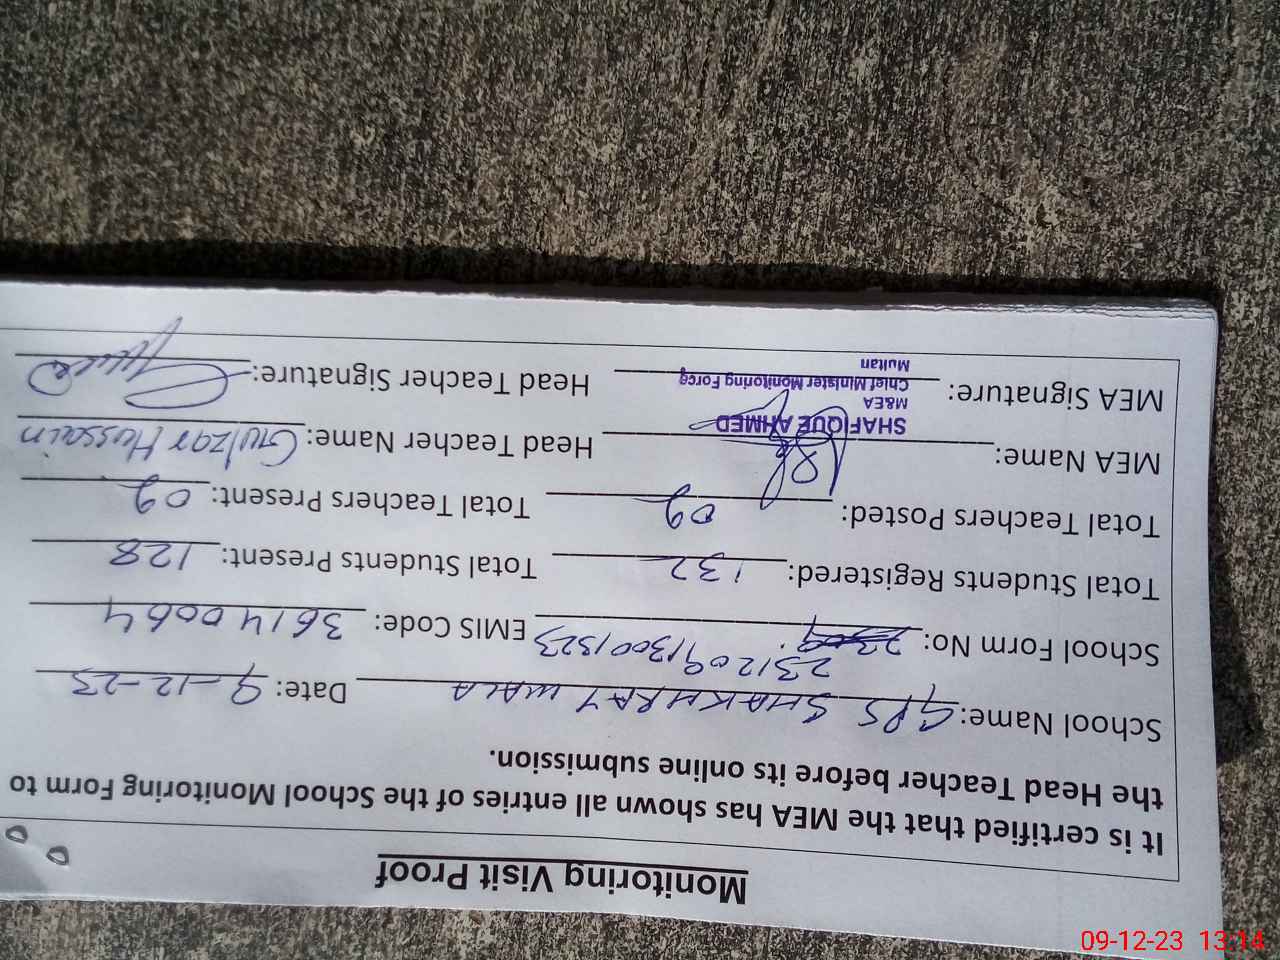 Monitoring Visit Proof
It is certified that the MEA has shown all entries of the School Monitoring Form to
the Head Teacher before its online submission.
School Name: GPS SHAKHRAY WALA Date: 9-12-23
23120913001323
School Form No: EMIS Code: 36140064
Total Students Registered: 132 Total Students Present: 128
Total Teachers Posted: 02 Total Teachers Present: 02
MEA Name: SHAFIQUE AHMED Head Teacher Name: Gulzar Hussain
M&EA
Chief Minister Monitoring Force
Multan
MEA Signature: Head Teacher Signature:
09-12-23 13:14